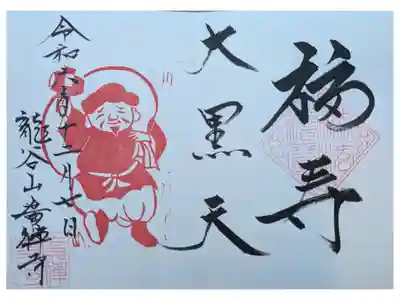 福寿
大黒天
令和六年十二月七日
龍谷山 禅寺